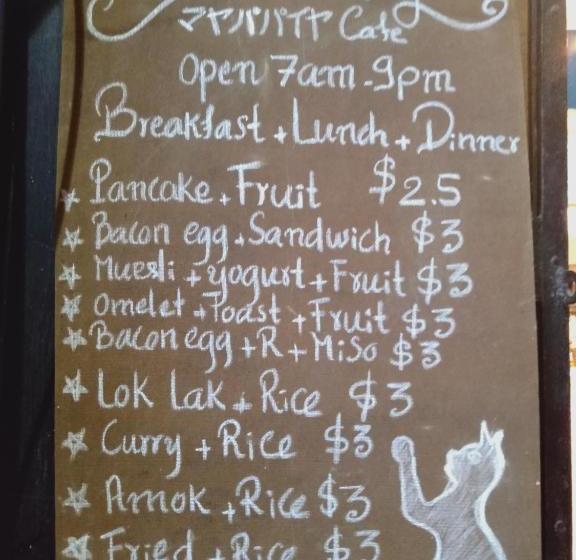 マヤパパイヤ Cafe
Open 7am-9pm
Breakfast + Lunch + Dinner
Pancake + Fruit $2.5
Bacon egg + Sandwich $3
Muesli + yogurt + Fruit $3
Omelet + Toast + Fruit $3
Bacon egg + R + Miso $3
Lok Lak + Rice $3
Curry + Rice $3
Amok + Rice $3
Fried + Rice $3